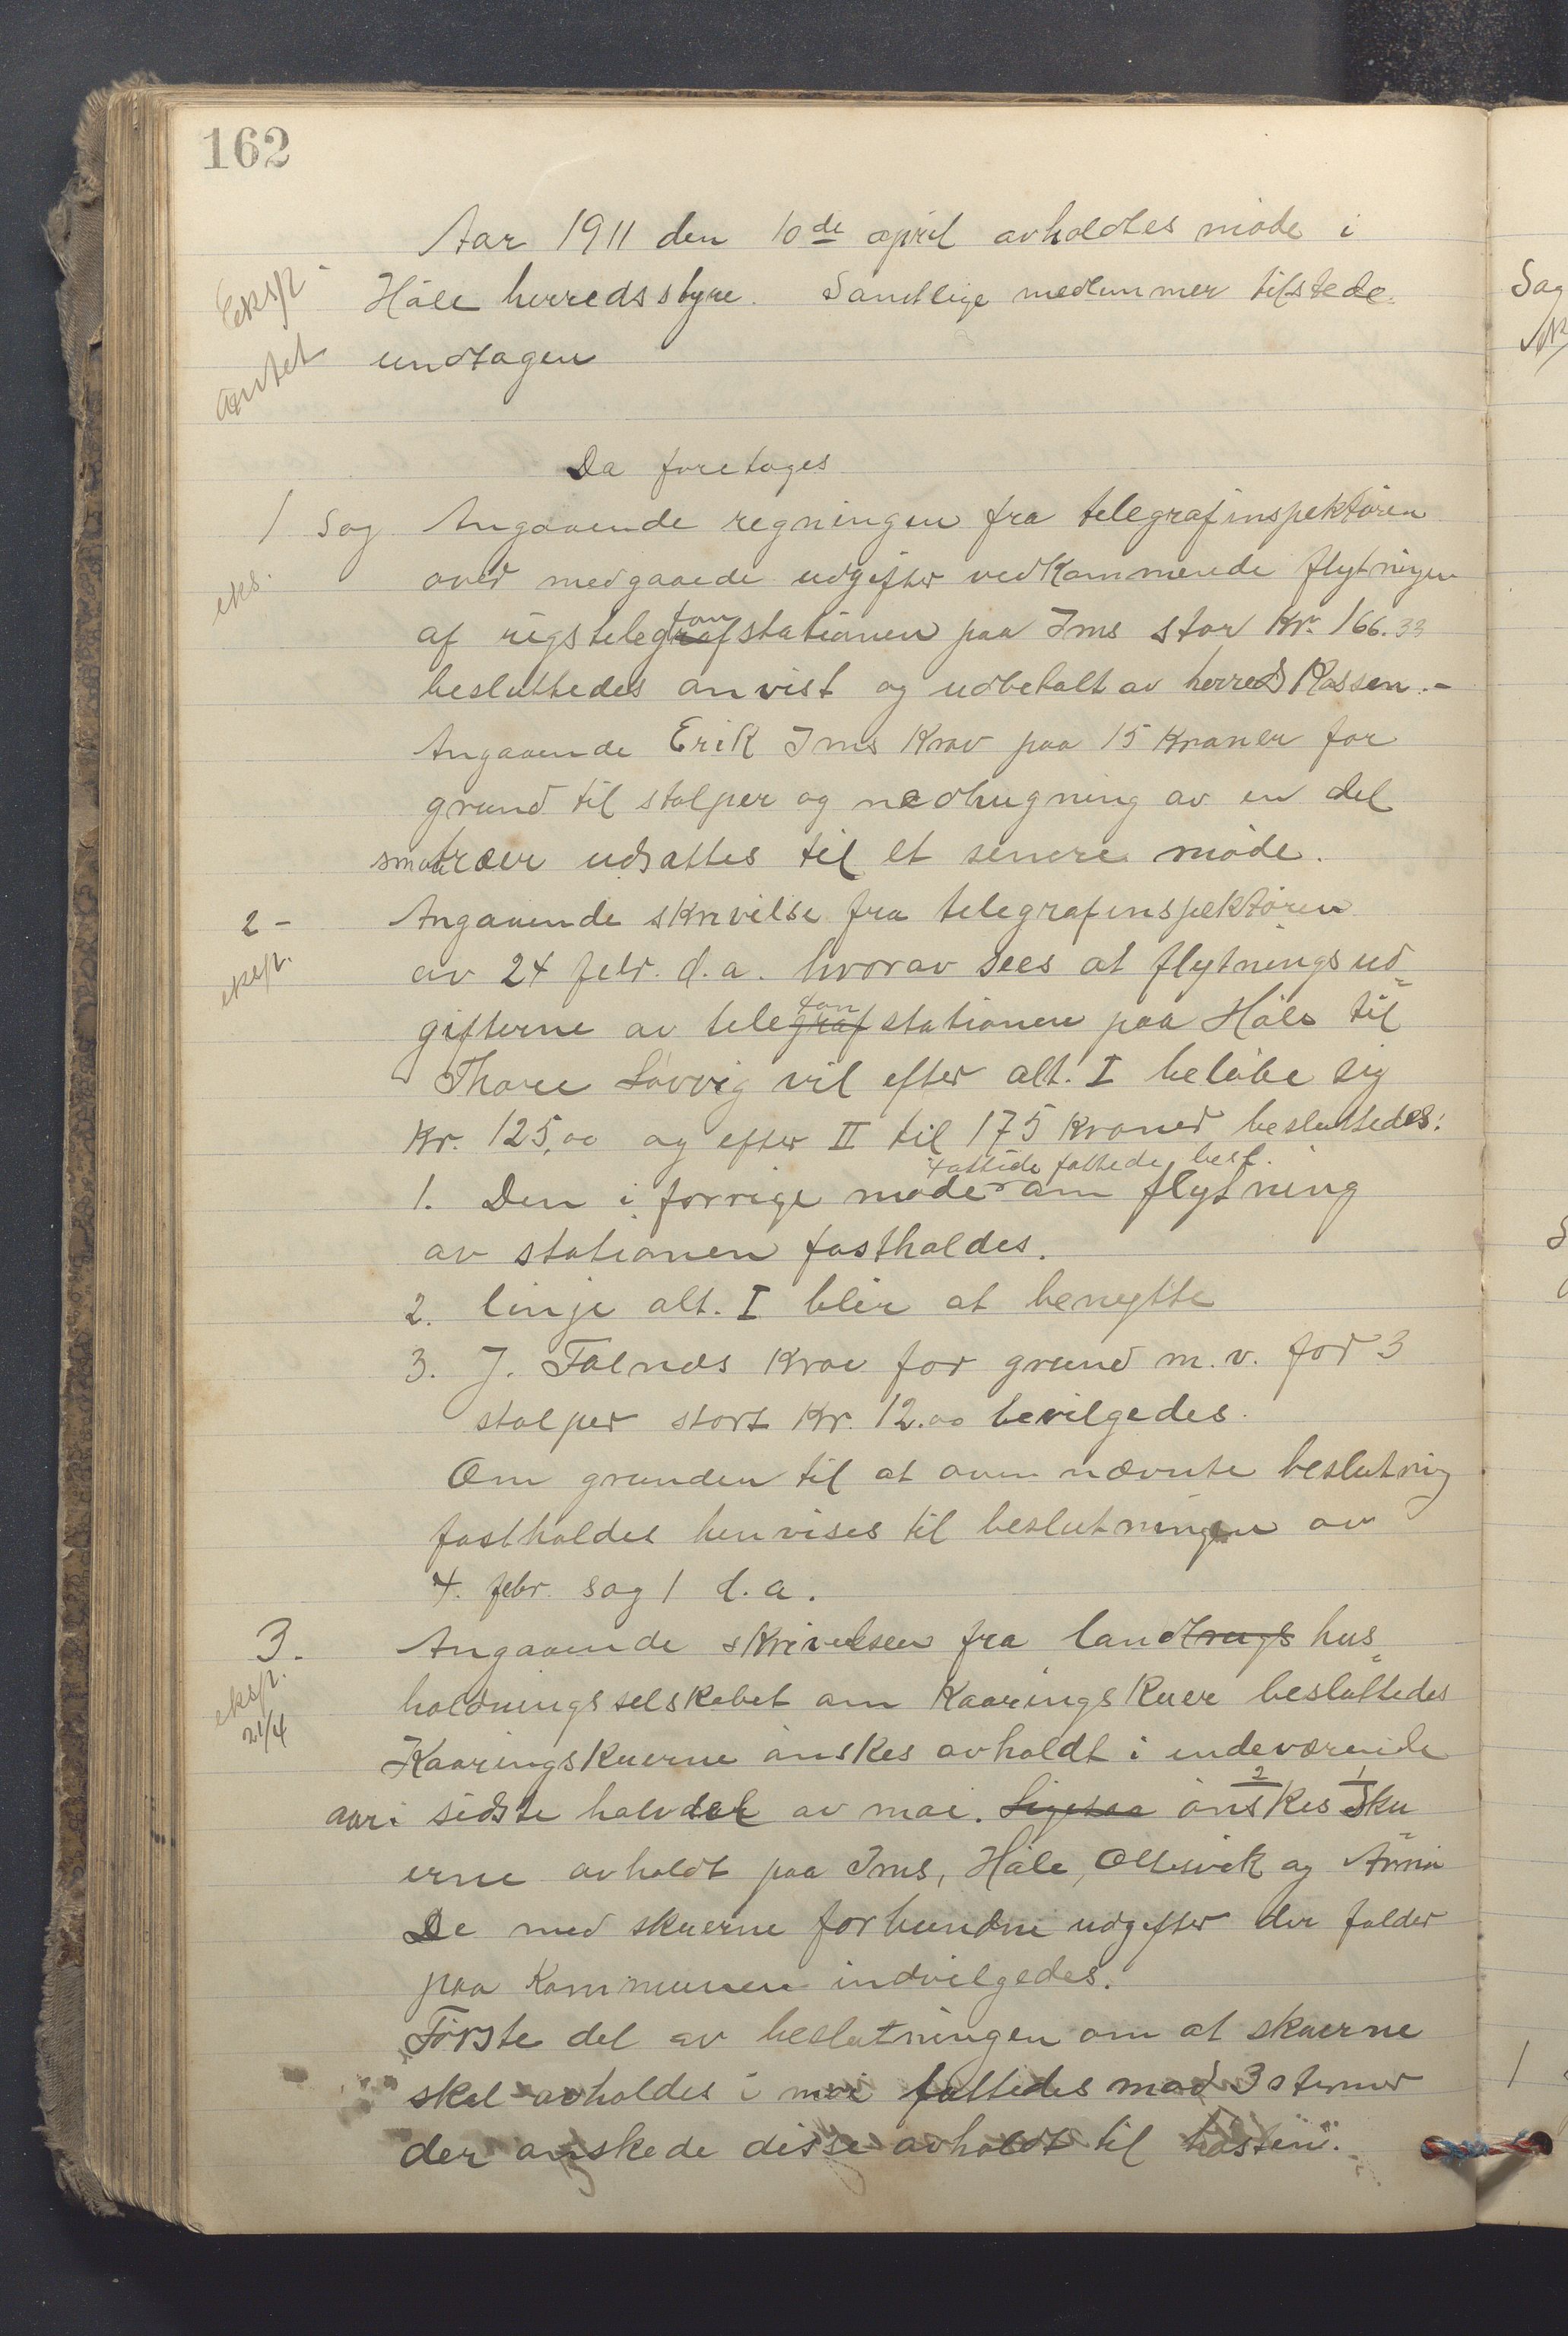 162
Aar 1911 den 10de april avholdtes møde i
Eksp.
Høle herredsstyre. Samtlige medlemmer tilstede
undtagen
antet
Da foretoges
1 Sag Angaaende regningen fra telegrafinspektøren
eks.
over medgaaede udgifter vedkommende flytningen
fon
af rigstelegrafstationen paa Ims stor Kr. 166.33
besluttedes anvist og udbetalt av herredskassen.-
Angaaende Erik Ims krav paa 15 kroner for
grund til stolper og nedhugning av en del
smaatræer udsattes til et senere møde.
2 - Angaaende skrivelse fra telegrafinspektøren
eksp.
av 24 febr. d.a. hvorav sees at flytningsud=
fon
gifterne av telegrafstationen paa Høle til
Thore Løvvig vil efter alt. I beløbe sig
Kr. 125,00 og efter II til 175 kroner besluttedes:
fattede besl.
1. Den i forrige møde om flytning
av stationen fastholdes.
2. linje alt. I blir at benytte
3. J. Folnæs krav for grund m.v. for 3
stolper stort Kr. 12.00 bevilgedes.
Om grunden til at oven nævnte beslutning
fastholdes henvises til beslutningen av
4. febr. sag 1 d.a.
3. Angaaende skrivelsen fra landbrugs hus=
eksp.
21/4
holdningsselskabet om kaaringskuer besluttedes
Kaaringskuerne ønskes avholdt i indeværende
aar i sidste halvdel av mai. Ligesaa ønskes 2 Sku 1
erne avholdt paa Ims, Høle, Oltesvik og
De med skuerne forbundne udgifter der falder
paa kommunen indvilgedes.
Første del av beslutningen om at skuerne
skal avholdes i mai fattedes mod 3 stemmer
der ønskede disse avholdt til høsten.
Sag
1